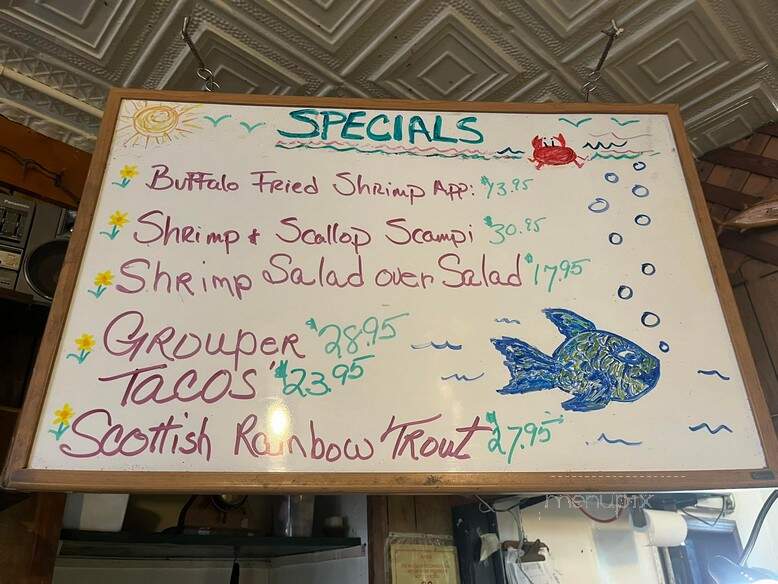 SPECIALS
Buffalo Fried Shrimp App: $13.95
Shrimp & Scallop Scampi $30.95
Shrimp Salad over Salad $17.95
GROUPER $28.95
TACOS $23.95
Scottish Rainbow Trout $27.95
menupix